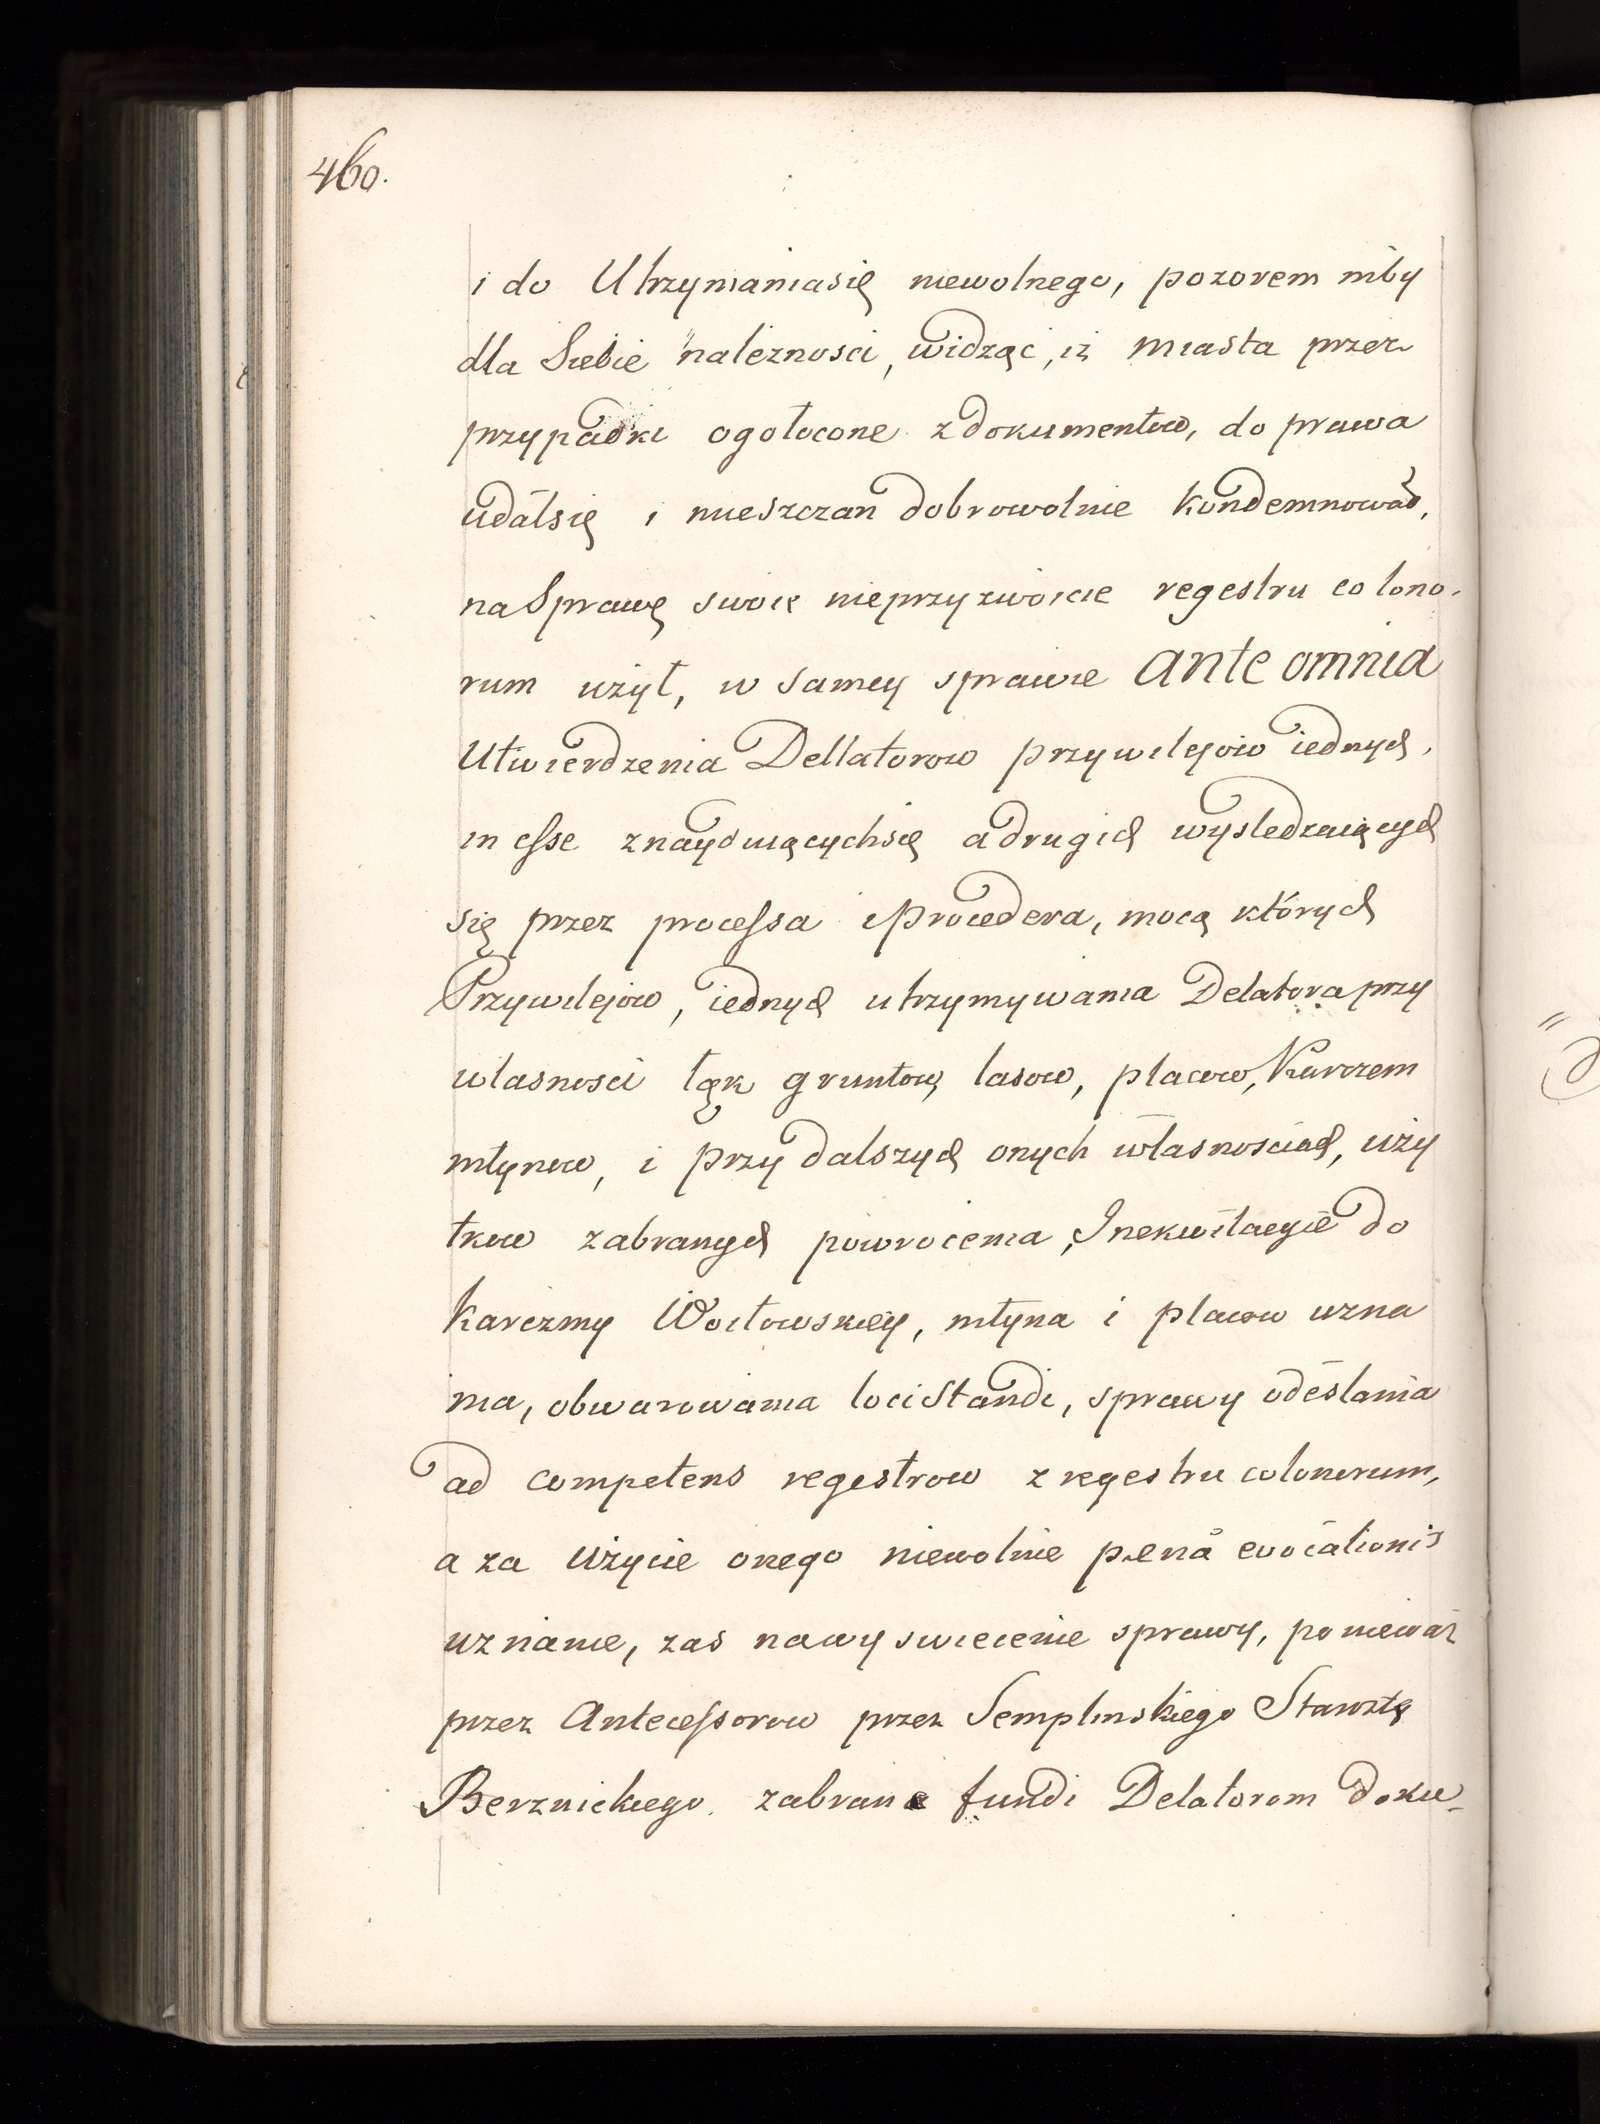 460.
i do Utrzymania się niewolnego, pozorem niby
dla Siebie należnosci, widząc, iż Miasta przez
przypadki ogołocone z dokumentow, do prawa
udał się i mieszczan dobrowolnie kondemnował,
na Sprawę swoie nieprzyzwoicie regestru colono-
rum użył, w samey sprawie ante omnia
Utwierdzenia Dellatorow przywilejow iednych,
in esse znayduiących się a drugich wysledzaiących
się przez processa i Procedera, mocą których
Przywilejow, iednych utrzymywania Delatora przy
własnosci łąk gruntow, lasow, placow, Karczem
młynow, i przy dalszych onych własnosciach, uży
tkow zabranych powrocenia, Inekwitacyie do
Karczmy Woitowskiey, młyna i placow uzna
nia, obwarowania loci Standi, sprawy odesłania
ad competens regestrow z regestru colonorum,
a za Użycie onego niewolnie pæna evocationis
uznanie, zas na wyswiecenie sprawy, ponieważ
przez Antecessorow przez Semplinskiego Starostę
Berznickiego zabrane fundi Delatorom doku-